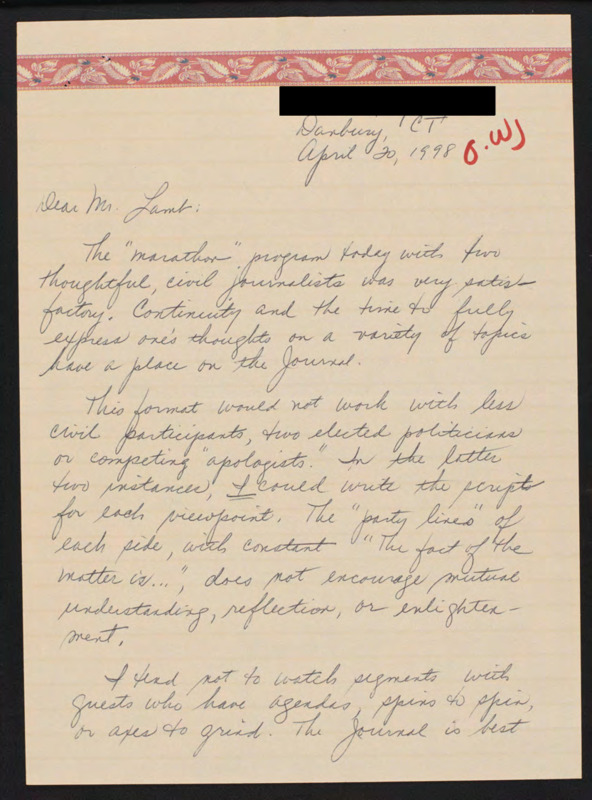 Danbury, CT
April 20, 1998
O.WJ
Dear Mr. Lamb:
The "marathon" program today with two
thoughtful, civil journalists was very satis-
factory. Continuity and the time to fully
express one's thoughts on a variety of topics
have a place on the Journal.
This format would not work with less
civil participants, two elected politicians
or competing "apologists." In the latter
two instances, I could write the script
for each viewpoint. The "party lines" of
each side, with constant "The fact of the
matter is...", does not encourage mutual
understanding, reflection, or enlighten-
ment.
I tend not to watch segments with
guests who have agendas, spins to spin,
or axes to grind. The Journal is best